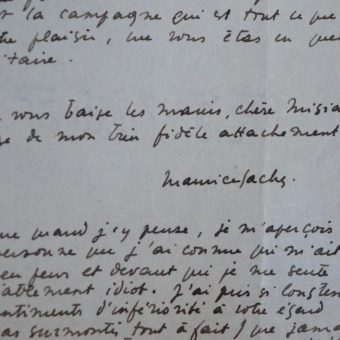 t la campagne qui est tout ce que
plaisir, que vous êtes en
itaire.
vous baise les mains, chère Misia
ge de mon très fidèle attachement
Maurice Sachs.
ue quand j'y pense, je m'aperçois
ersonne que j'ai connue qui m'ait
eu peur et devant qui je me sente
idiot. J'ai puis si longtem
ntiments d'infériorité à votre égard
as surmontés tout à fait) que jama